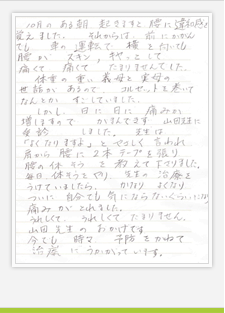 10月の ある朝 起きると 腰に 違和感を
覚えました。 それからは 前に かがん
でも 車の 運転で 横を 向いても
腰が
痛くて 痛くて たまりませんでした。
体重の 重い 義母と 実母の
世話が あるので コルセットを 巻いて
なんとか すごしていました。
しかし、日に 日に 痛みが
増しますので 山田先生に
受診 しました。 先生は
「よくなりますよ」と やさしく 言われ
肩から 腰に 2本 テープを 張り
腰の 体そう を 教えて 下さりました。
毎日 体そうを やり、 先生の 治療を
うけていましたら、 かなり よくなり
ついに 自分でも 気に ならないくらいに
痛みが とれました。
うれしくて、うれしくて たまりません。
山田先生の おかげです。
今でも 時々 予防を かねて
治療に うかがっています。